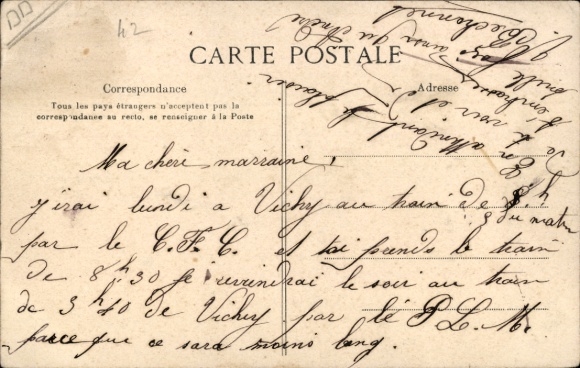 42
CARTE POSTALE
Correspondance
Tous les pays étrangers n'acceptent pas la
correspondance au recto, se renseigner à la Poste
Adresse
Ma chèri marraine,
j'irai lundi a Vichy au train de 8 h
8 du matin
par le C.F.C. et toi prends le train
de 8h30 je reviendrai le soir au train
de 3h40 de Vichy par le P.L.M.
parce que ce sara moins long.
En attendant le plaisir
de te voir et de
t'embrasse
ainsi qu